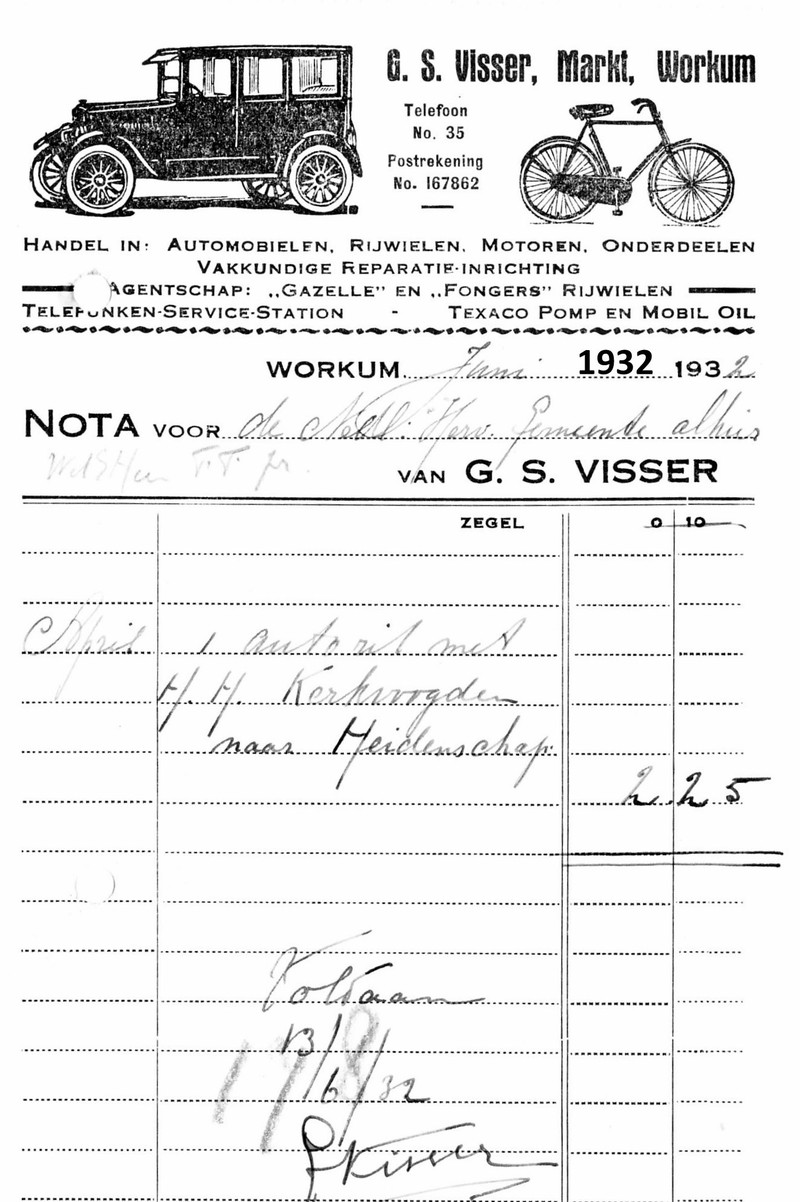 G. S. Visser, Markt, Workum
Telefoon
No. 35
Postrekening
No. 167862
HANDEL IN: AUTOMOBIELEN, RIJWIELEN, MOTOREN, ONDERDEELEN
VAKKUNDIGE REPARATIE-INRICHTING
AGENTSCHAP: „GAZELLE" EN „FONGERS" RIJWIELEN
TELEFUNKEN-SERVICE-STATION - TEXACO POMP EN MOBIL OIL
WORKUM Juni 1932 1932
NOTA VOOR de Nedl. Herv. Gemeente alhier
VAN G. S. VISSER
ZEGEL 0 10
April 1 autorit met
H. H. Kerkvoogden
naar Heidenschap.
2.25
Voldaan
13/6/32
GSVisser